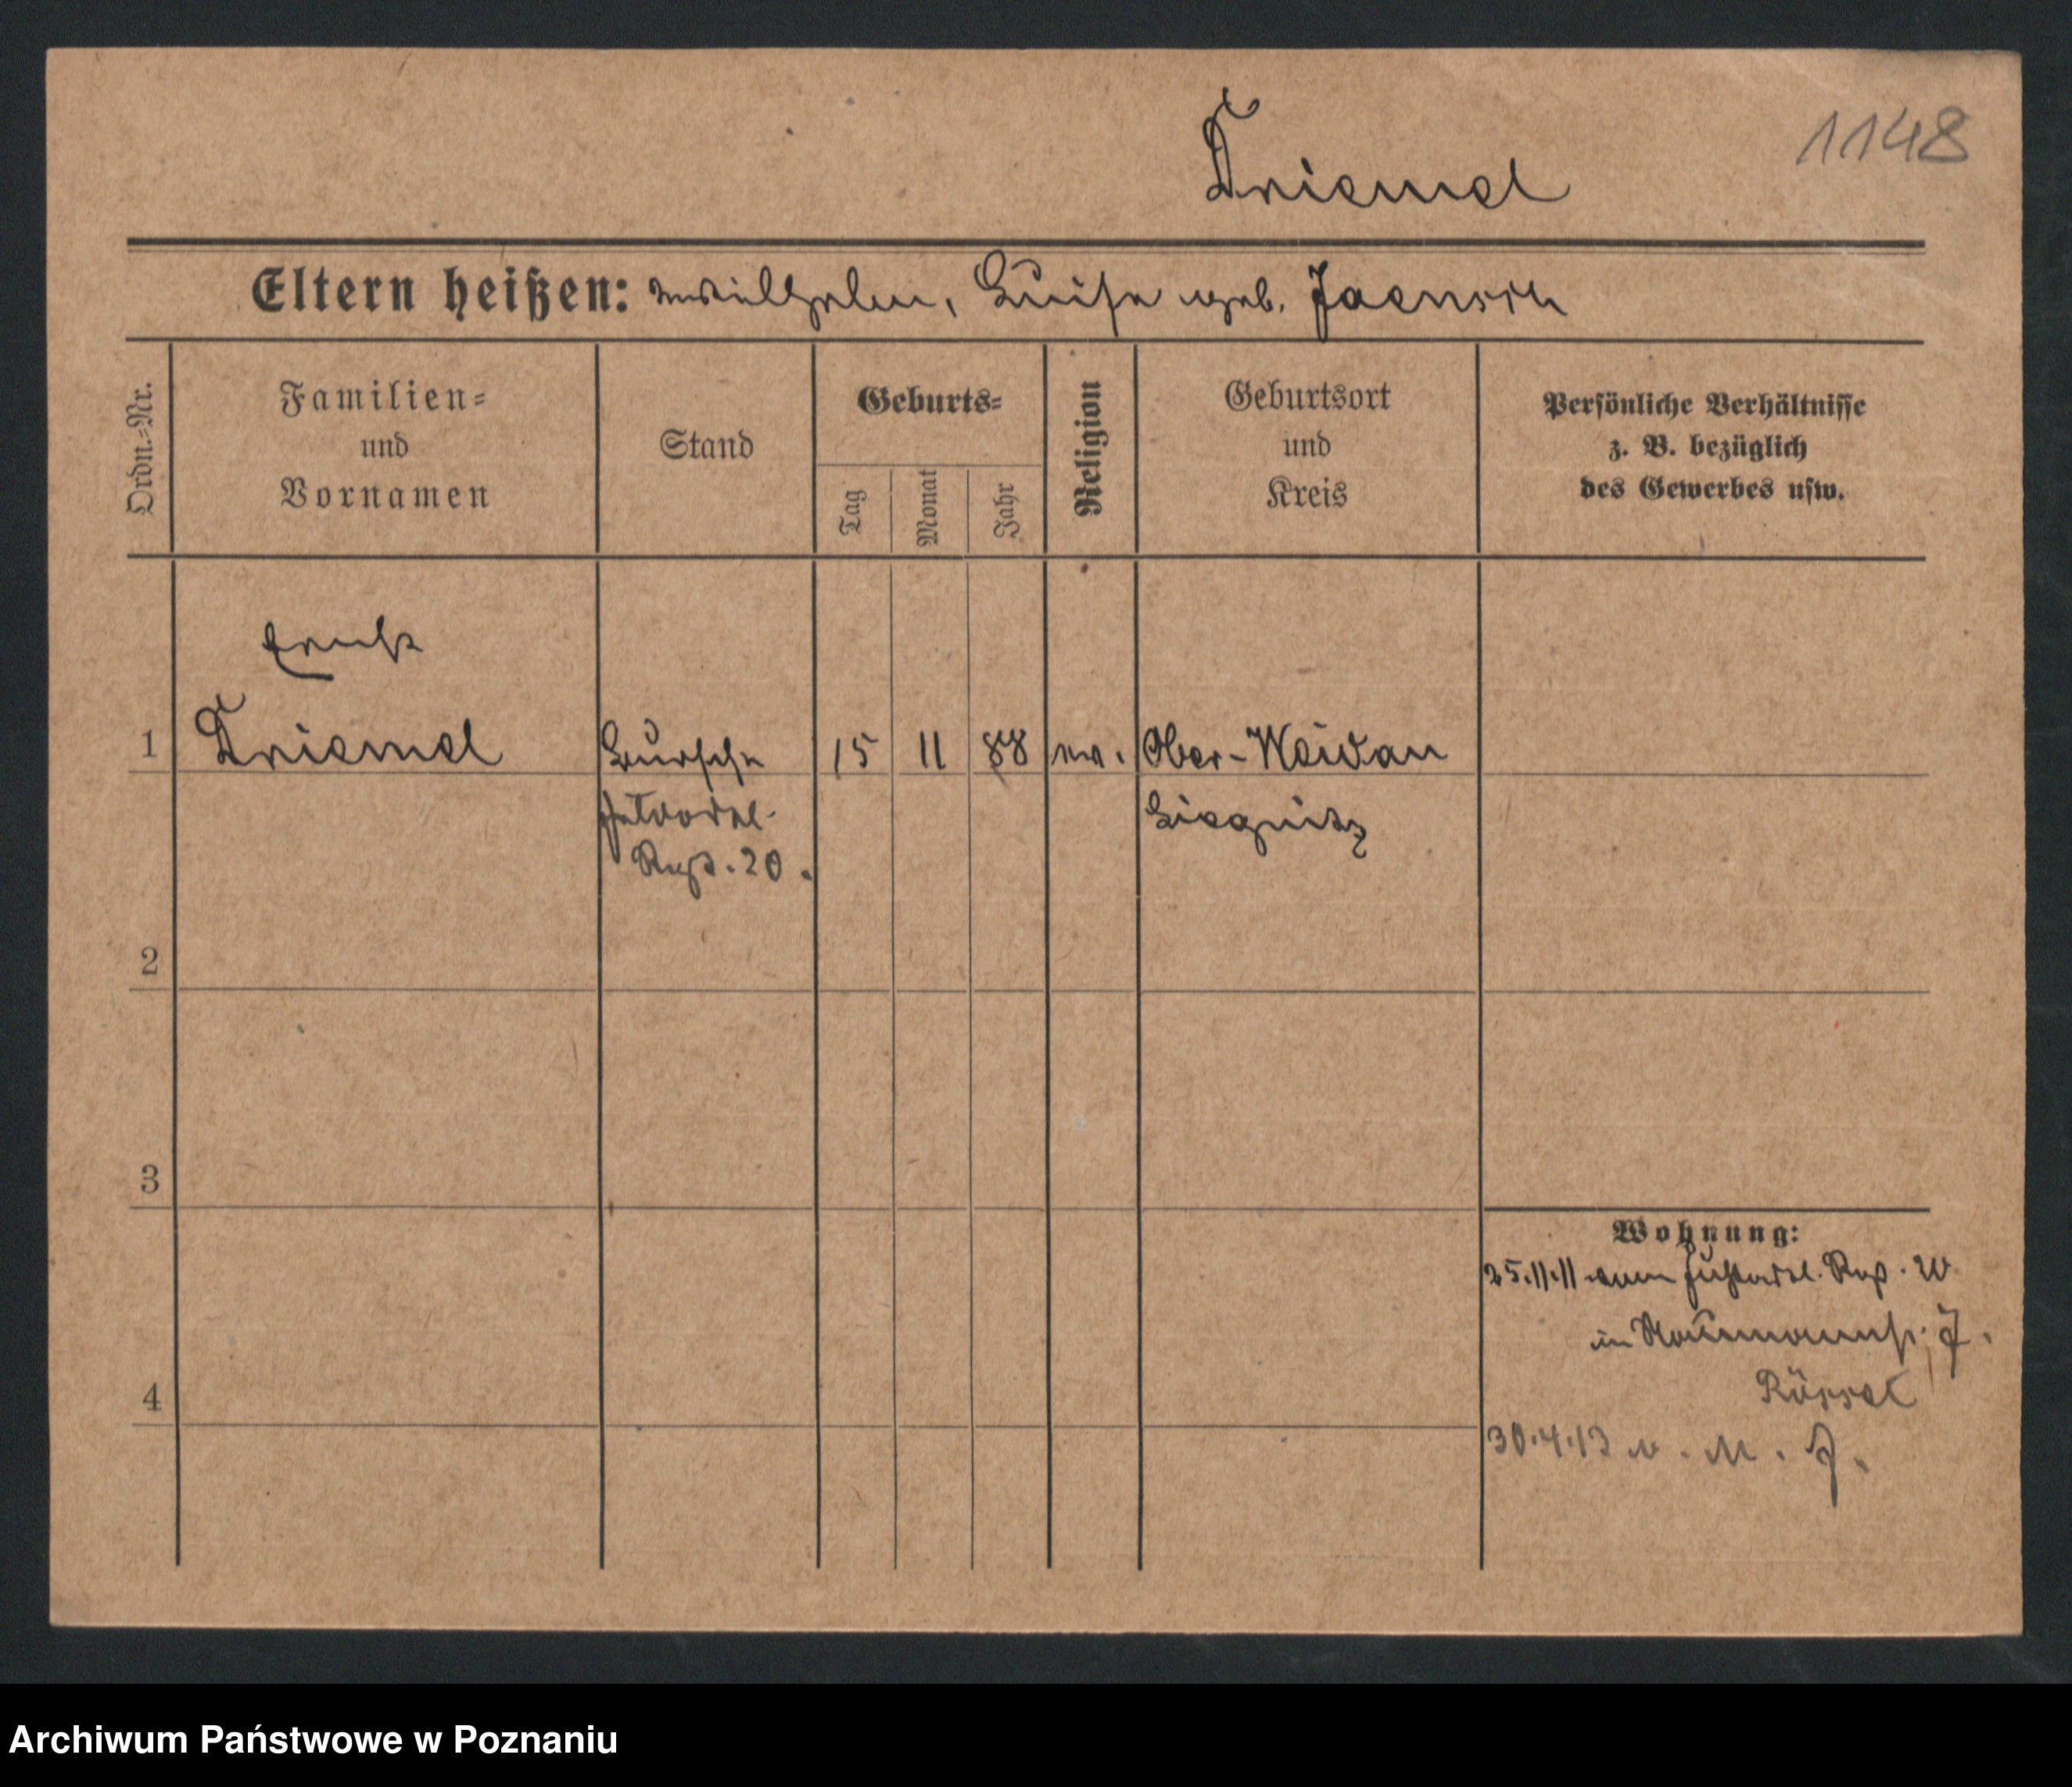 1148
Triemel
Eltern heißen: Wilhelm, Luise geb. Jaensch
Ordn.-Nr.
Familien-
und
Vornamen
Stand
Geburts-
Tag
Monat
Jahr
Religion
Geburtsort
und
Kreis
Persönliche Verhältnisse
z. B. bezüglich
des Gewerbes usw.
Ernst
1 Triemel Bursche 15 11 88 ev. Ober-Weidau
Feldartl. Liegnitz
Regt. 20.
2
3
4
Wohnung:
25.11.11 vom Feldartl. Regt. 20
in Naumannstr. 7.
Rössel
30.4.13 n. M. J.
Archiwum Państwowe w Poznaniu